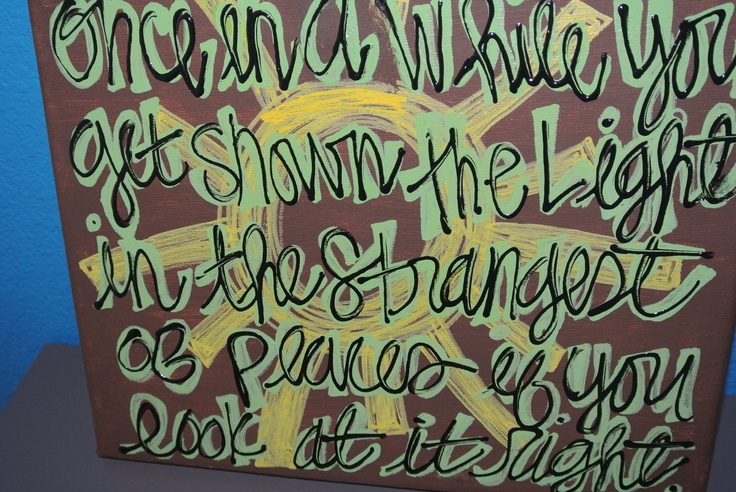 Once in a while you
get shown the Light
in the strangest
of places if you
look at it right.